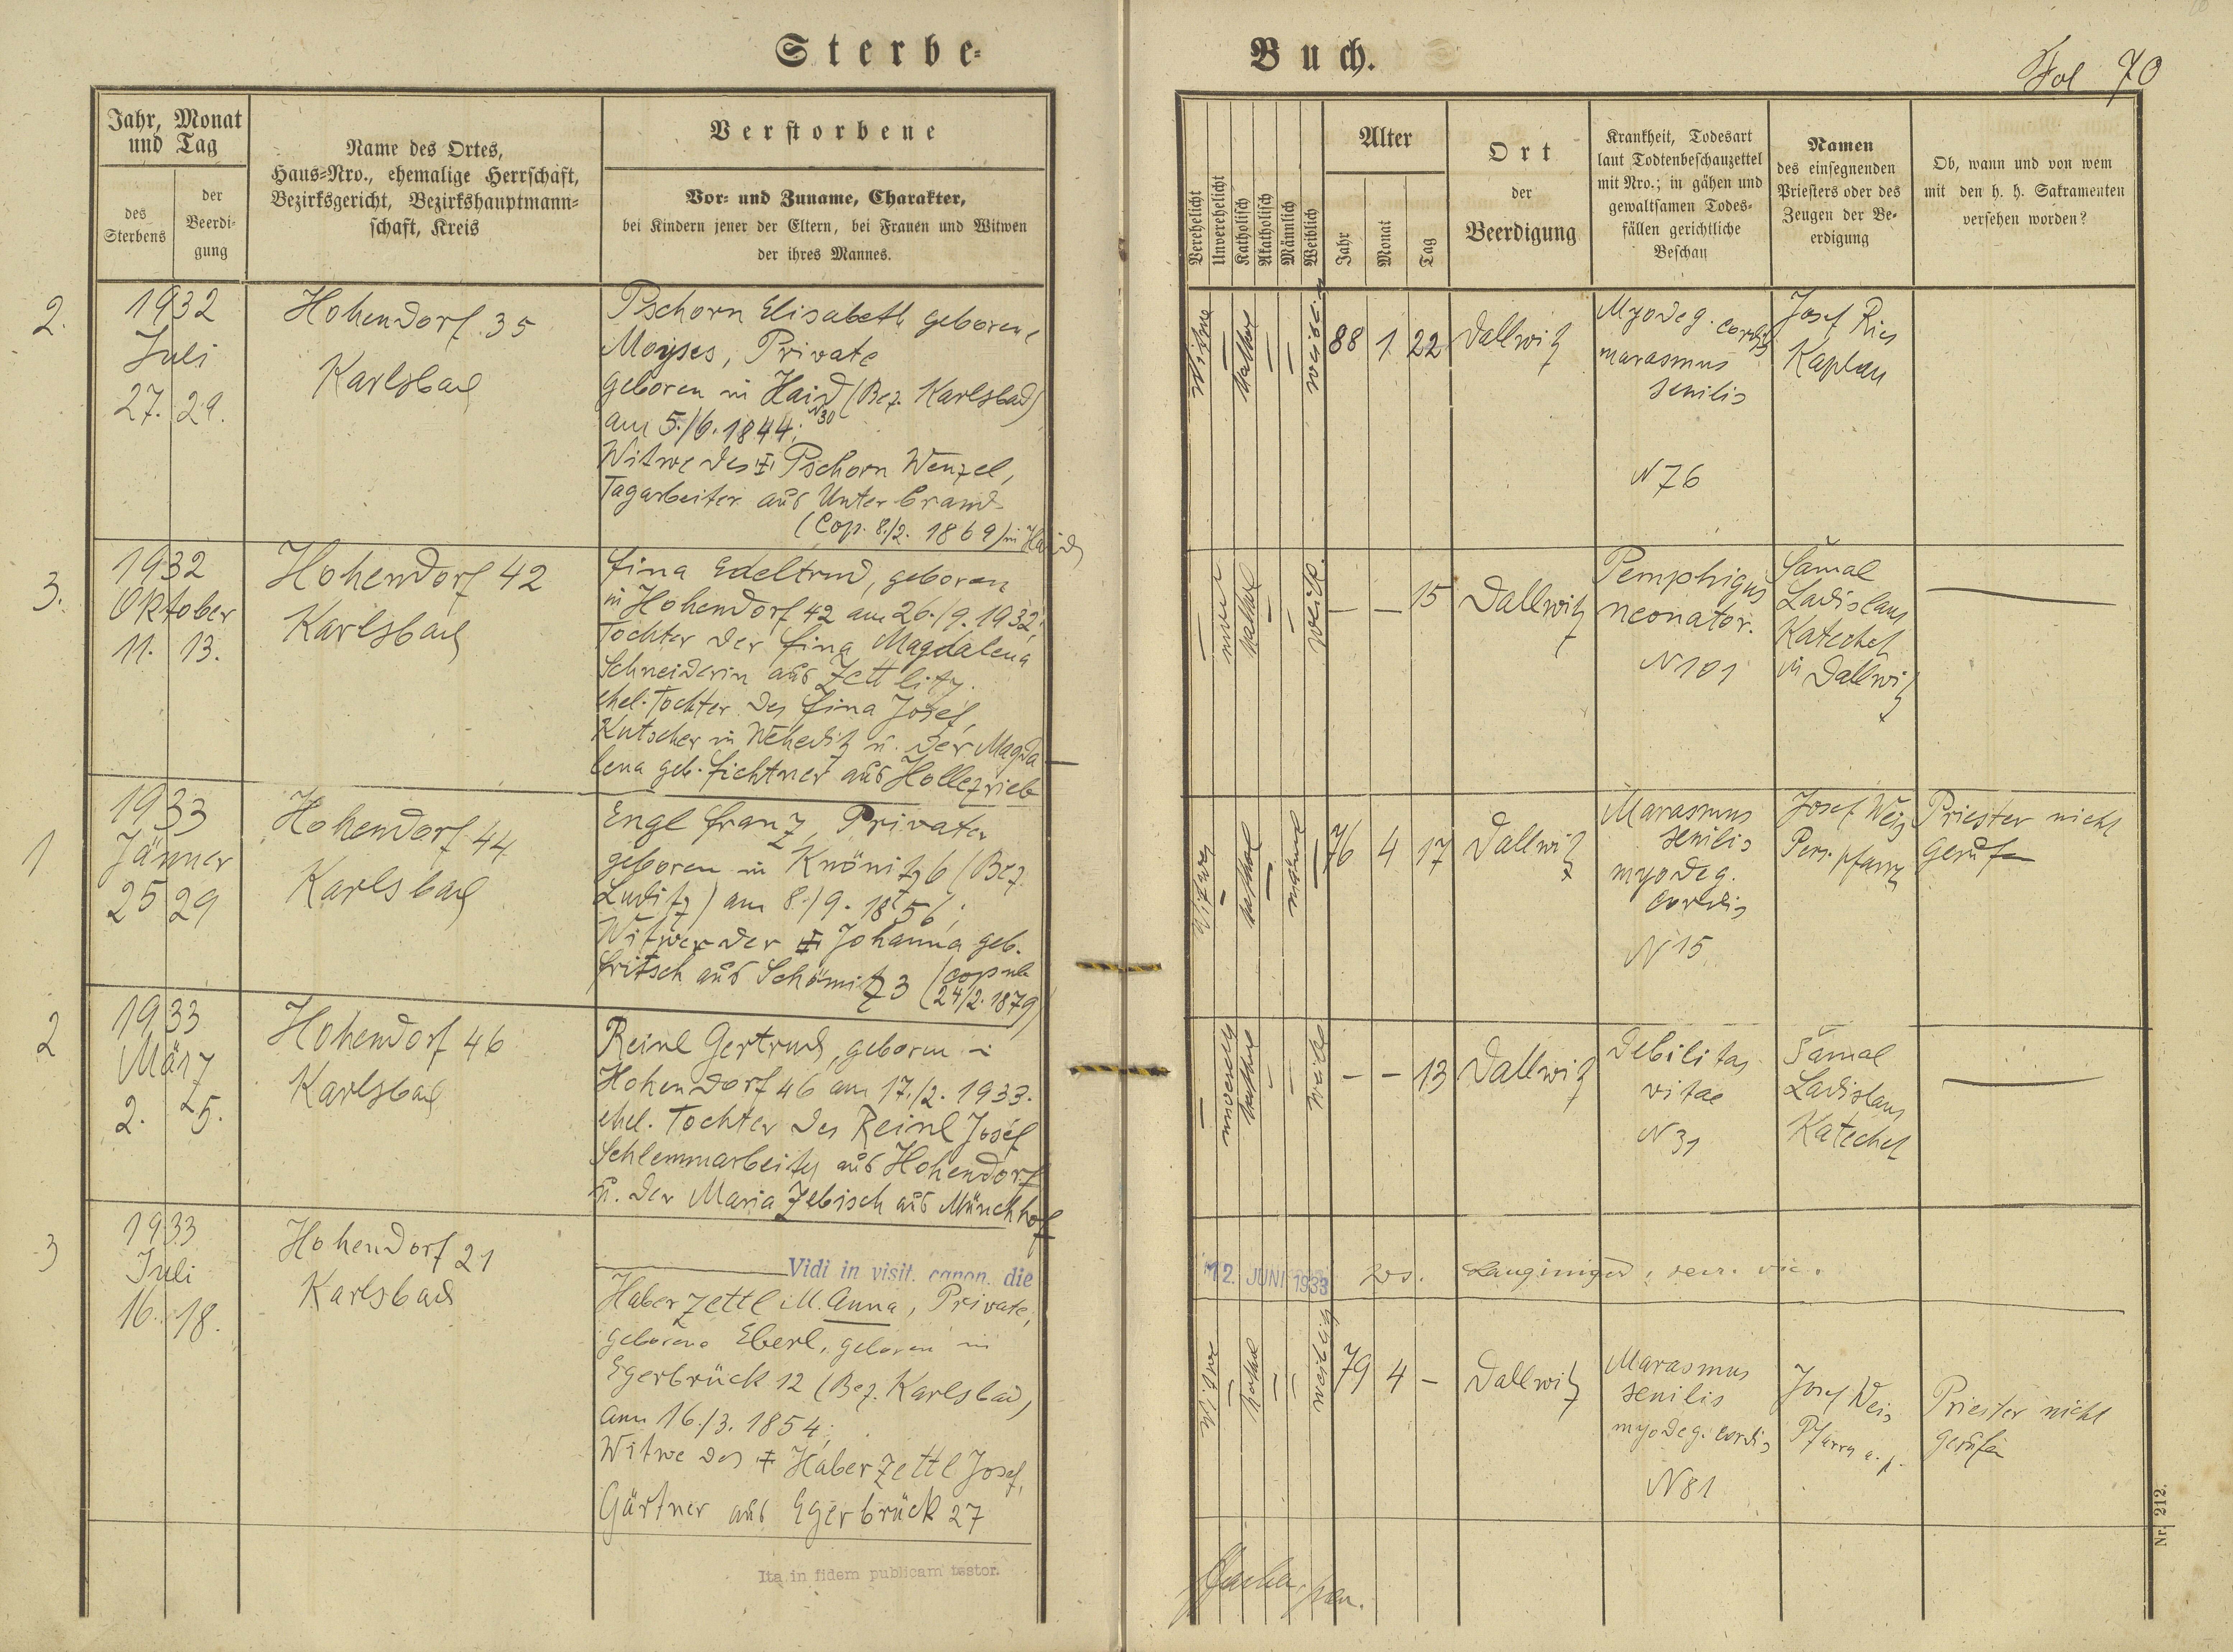 Sterbe-
Buch.
Fol 70
Jahr, Monat
und Tag
des
Sterbens
der
Beerdi-
gung
Name des Ortes,
Haus-Nro., ehemalige Herrschaft,
Bezirksgericht, Bezirkshauptmann-
schaft, Kreis
Verstorbene
Vor- und Zuname, Charakter,
bei Kindern jener der Eltern, bei Frauen und Witwen
der ihres Mannes.
Verehelicht
Unverehelicht
Katholisch
Akatholisch
Männlich
Weiblich
Alter
Jahr
Monat
Tag
Ort
der
Beerdigung
Krankheit, Todesart
laut Todtenbeschauzettel
mit Nro.; in gähen und
gewaltsamen Todes-
fällen gerichtliche
Beschau
Namen
des einsegnenden
Priesters oder des
Zeugen der Be-
erdigung
Ob, wann und von wem
mit den h. h. Sakramenten
versehen worden?
2.
1932
Juli
27. 29.
Hohendorf 35
Karlsbad
Pschorn Elisabeth geborene
Moyses, Private
geboren in Haid (Bez. Karlsbad)
N30
am 5./6. 1844;
Witwe des ‡ Pschorn Wenzel,
Tagarbeiter aus Unterbrand
(Cop. 8./2. 1869) in Haid
Witwe
—
kathol
—
—
weibl.
88 1 22
Dallwitz
Myodeg. cordis
marasmus
senilis
N 76
Josef Ries
Kaplan
3.
1932
Oktober
11. 13.
Hohendorf 42
Karlsbad
Fina Edeltrud, geboren
in Hohendorf 42 am 26./9. 1932,
Tochter der Fina Magdalena
Schneiderin aus Zettlitz.
ehel. Tochter des Fina Josef,
Kutscher in Weheditz u. der Magda
lena geb. Fichtner aus Hollezrieb
—
unver
kathol
—
—
weibl.
— — 15
Dallwitz
Pemphigus
neonator.
N 101
Šámal
Ladislaus
Katechet
in Dallwitz
—
1
1933
Jänner
25 29
Hohendorf 44
Karlsbad
Engl Franz, Privater
geboren in Knönitz 6 (Bez.
Luditz) am 8./9. 1856;
Witwer der ‡ Johanna geb.
Fritsch aus Schömitz 3 (copul
24/2. 1879)
Witwer
—
kathol
—
männl
—
76 4 17
Dallwitz
Marasmus
senilis
myodeg.
cordis
N 15
Josef Weis
Pers. pfarrer
Priester nicht
gerufen
2
1933
März
2. 5.
Hohendorf 46
Karlsbad
Reinl Gertrud, geboren in
Hohendorf 46 am 17./2. 1933.
ehel. Tochter des Reinl Josef
Schlemmarbeiter aus Hohendorf
u. der Maria Zebisch aus Münchhof
—
unverehl
kathol
—
—
weibl
— — 13
Dallwitz
Debilitas
vitae
N 31
Šámal
Ladislaus
Katechet
—
Vidi in visit. canon. die
12. JUNI 1933
3
1933
Juli
16. 18.
Hohendorf 21
Karlsbad
Haberzettl M. Anna, Private,
geborene Eberl, geboren in
Egerbrück 12 (Bez. Karlsbad)
am 16./3. 1854;
Witwe des ‡ Haberzettl Josef,
Gärtner aus Egerbrück 27
Witwe
—
kathol
—
—
weiblich
79 4 —
Dallwitz
Marasmus
senilis
myodeg. cordis
N 81
Josef Weis
Pfarrer a. p.
Priester nicht
gerufen
Ita in fidem publicam testor.
Nr. 212.